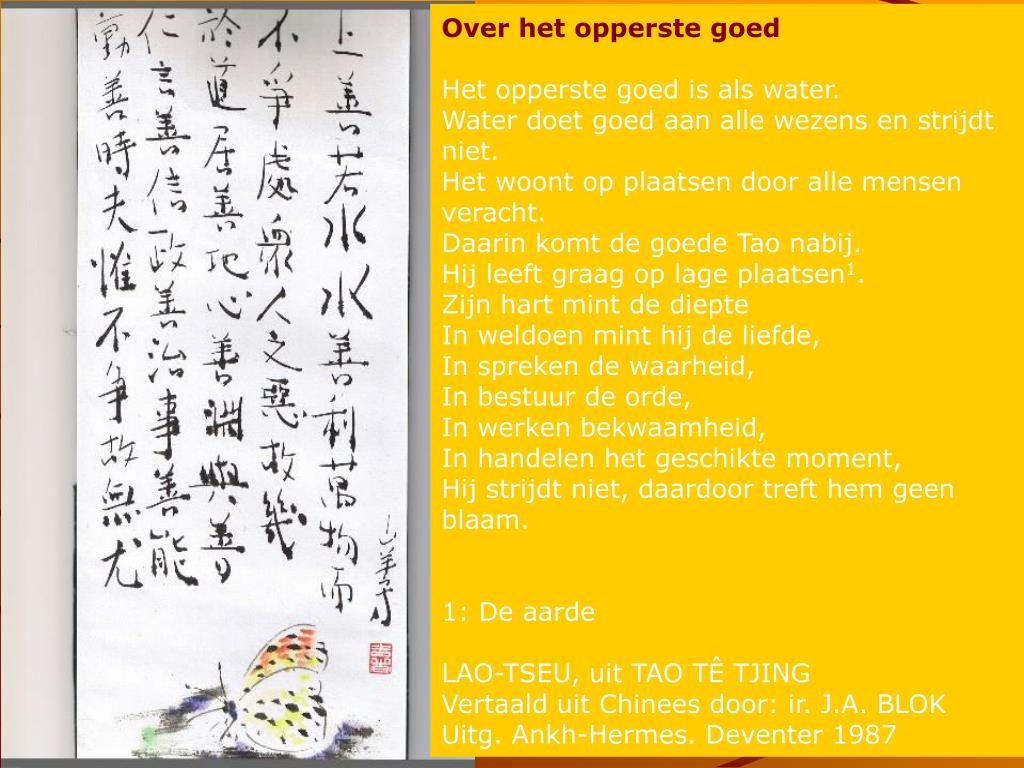 上善若水水善利萬物而
不爭處衆人之惡故幾
於道居善地心善淵與善
仁言善信政善治事善能
動善時夫惟不争故無尤
Over het opperste goed
Het opperste goed is als water.
Water doet goed aan alle wezens en strijdt
niet.
Het woont op plaatsen door alle mensen
veracht.
Daarin komt de goede Tao nabij.
Hij leeft graag op lage plaatsen¹.
Zijn hart mint de diepte
In weldoen mint hij de liefde,
In spreken de waarheid,
In bestuur de orde,
In werken bekwaamheid,
In handelen het geschikte moment,
Hij strijdt niet, daardoor treft hem geen
blaam.
1: De aarde
LAO-TSEU, uit TAO TÊ TJING
Vertaald uit Chinees door: ir. J.A. BLOK
Uitg. Ankh-Hermes. Deventer 1987